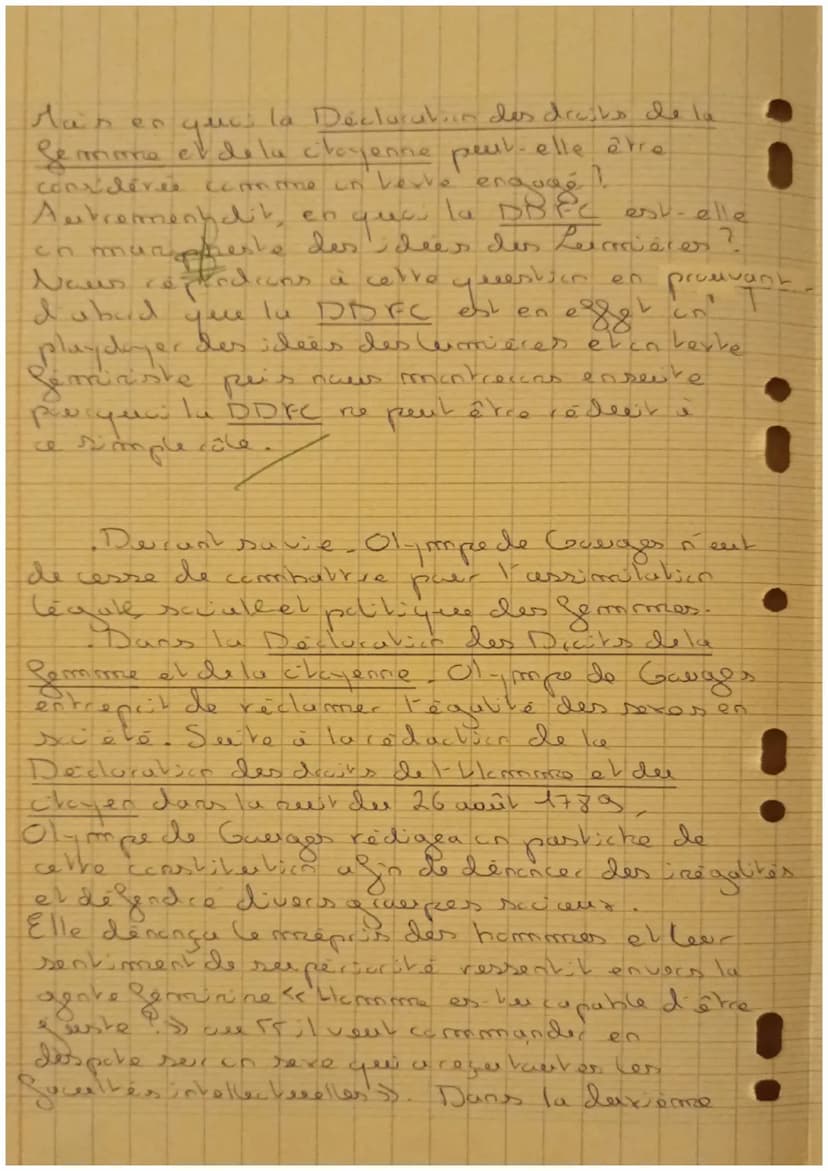 Mais en quoi la Déclaration des droits de la
femme et de la citoyenne peut-elle être
considérée comme un texte engagé ?
Autrement dit, en quoi la DDFC est-elle
un manifeste des idées des Lumières ?
Nous répondrons à cette question en prouvant
d'abord que la DDFC est en effet un
playdoyer des idées des lumières et un texte
féministe puis nous montrerons ensuite
pourquoi la DDFC ne peut être réduit à
ce simple rôle.
Durant sa vie, Olympe de Gouges n'eut
de cesse de combattre pour l'assimilation
légale, sociale et politique des femmes.
Dans la Déclaration des Droits de la
femme et de la citoyenne, Olympe de Gouges
entreprit de réclamer l'égalité des sexes en
société. Suite à la rédaction de la
Déclaration des droits de l'Homme et du
citoyen dans la nuit du 26 août 1789,
Olympe de Gouges rédigea un pastiche de
cette constitution afin de dénoncer des inégalités
et défendre divers groupes sociaux.
Elle dénonça le mépris des hommes et leur
sentiment de supériorité ressentit envers la
gente féminine « Homme es-tu capable d'être
juste ? » ou « il veut commander en
despote sur un sexe qui a reçu toutes les
facultés intellectuelles ». Dans la deuxième